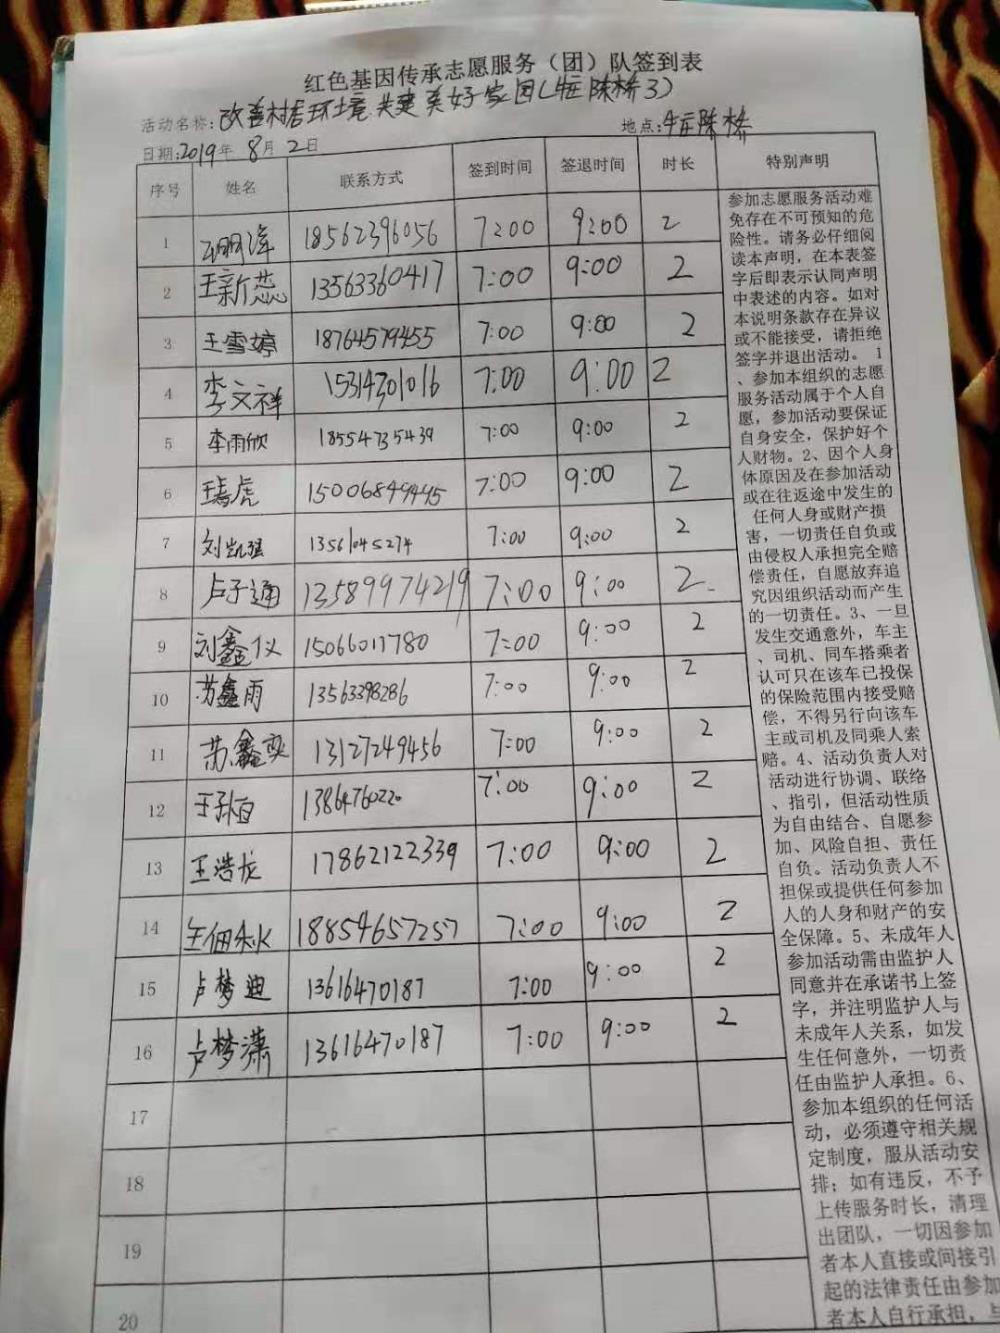 红色基因传承志愿服务（团）队签到表
活动名称：改善村居环境 共建美好家园（牛庄陈桥3）
地点：牛庄陈桥
日期：2019年8月2日
序号 姓名 联系方式 签到时间 签退时间 时长 特别声明
1 18562396056 7:00 9:00 2
2 王新蕊 13563360417 7:00 9:00 2
3 王雪婷 18764579455 7:00 9:00 2
4 李文祥 15314301016 7:00 9:00 2
5 李雨欣 18554735439 7:00 9:00 2
6 15006849445 7:00 9:00 2
7 刘凯强 13561045274 7:00 9:00 2
8 卢子通 13589974219 7:00 9:00 2
9 刘鑫仪 15066017780 7:00 9:00 2
10 苏鑫雨 13563398286 7:00 9:00 2
11 苏鑫奕 13127249456 7:00 9:00 2
12 13864760220 7:00 9:00 2
13 王浩龙 17862122339 7:00 9:00 2
14 18854657257 7:00 9:00 2
15 卢梦迪 13616470187 7:00 9:00 2
16 卢梦潇 13616470187 7:00 9:00 2
17
18
19
20
参加志愿服务活动难
免存在不可预知的危
险性。请务必仔细阅
读本声明，在本表签
字后即表示认同声明
中表述的内容。如对
本说明条款存在异议
或不能接受，请拒绝
签字并退出活动。 1
、参加本组织的志愿
服务活动属于个人自
愿，参加活动要保证
自身安全，保护好个
人财物。2、因个人身
体原因及在参加活动
或在往返途中发生的
任何人身或财产损
害，一切责任自负或
由侵权人承担完全赔
偿责任，自愿放弃追
究因组织活动而产生
的一切责任。3、一旦
发生交通意外，车主
、司机、同车搭乘者
认可只在该车已投保
的保险范围内接受赔
偿，不得另行向该车
主或司机及同乘人索
赔。4、活动负责人对
活动进行协调、联络
、指引，但活动性质
为自由结合、自愿参
加、风险自担、责任
自负。活动负责人不
担保或提供任何参加
人的人身和财产的安
全保障。5、未成年人
参加活动需由监护人
同意并在承诺书上签
字，并注明监护人与
未成年人关系，如发
生任何意外，一切责
任由监护人承担。6、
参加本组织的任何活
动，必须遵守相关规
定制度，服从活动安
排；如有违反，不予
上传服务时长，清理
出团队，一切因参加
者本人直接或间接引
起的法律责任由参加
者本人自行承担，与